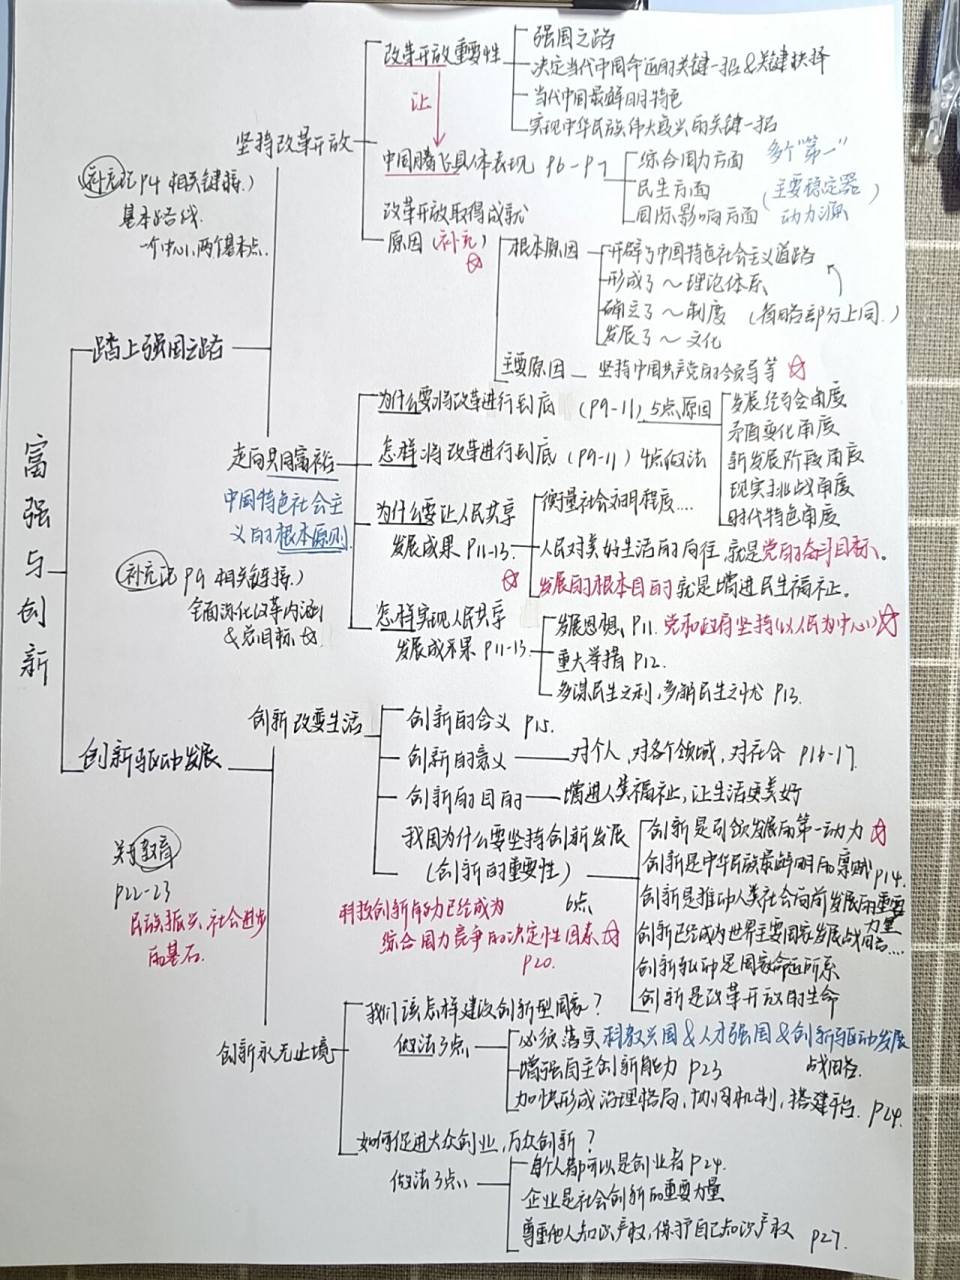 富强与创新
踏上强国之路
坚持改革开放
补充记P4 相关链接.)
基本路线.
一个中心, 两个基本点.
改革开放重要性
强国之路
决定当代中国命运的关键一招&关键抉择
当代中国最鲜明特色
实现中华民族伟大复兴的关键一招
让
中国腾飞具体表现 P6-P7
综合国力方面
民生方面
国际影响方面
多个"第一"
(主要稳定器
动力源)
改革开放取得成就
原因(补充)
根本原因
开辟了中国特色社会主义道路
形成了~理论体系
确立了~制度 (省略部分上同.)
发展了~文化
主要原因 — 坚持中国共产党的领导等
走向共同富裕
中国特色社会主
义的根本原则
补充记P9 相关链接.)
全面深化改革内涵
&总目标.
为什么要将改革进行到底 (P9-11) 5点原因
发展经验角度
矛盾变化角度
新发展阶段角度
现实挑战角度
时代特色角度
怎样将改革进行到底 (P9-11) 4点做法
为什么要让人民共享
发展成果 P11-13.
衡量社会文明程度....
人民对美好生活的向往 就是党的奋斗目标。
发展的根本目的就是增进民生福祉。
怎样实现人民共享
发展成果 P11-13.
发展思想. P11. 党和政府坚持(以人民为中心)
重大举措 P12.
多谋民生之利, 多解民生之忧 P13.
创新驱动发展
关于教育
P22-23
民族振兴, 社会进步
的基石.
创新改变生活
创新的含义 P15.
创新的意义 — 对个人, 对各个领域, 对社会 P16-17.
创新的目的 — 增进人类福祉, 让生活更美好
我国为什么要坚持创新发展
(创新的重要性)
6点
科技创新能力已经成为
综合国力竞争的决定性因素
P20.
创新是引领发展的第一动力
创新是中华民族最鲜明的禀赋 P14.
创新是推动人类社会向前发展的重要力量
创新已经成为世界主要国家发展战略....
创新驱动是国家命运所系
创新是改革开放的生命
创新永无止境
我们该怎样建设创新型国家?
做法3点
必须落实科教兴国&人才强国&创新驱动发展
战略.
增强自主创新能力 P23
加快形成治理格局, 协同机制, 搭建平台. P24.
如何促进大众创业, 万众创新?
做法3点
每个人都可以是创业者 P24.
企业是社会创新的重要力量
尊重他人知识产权, 保护自己知识产权 P27.